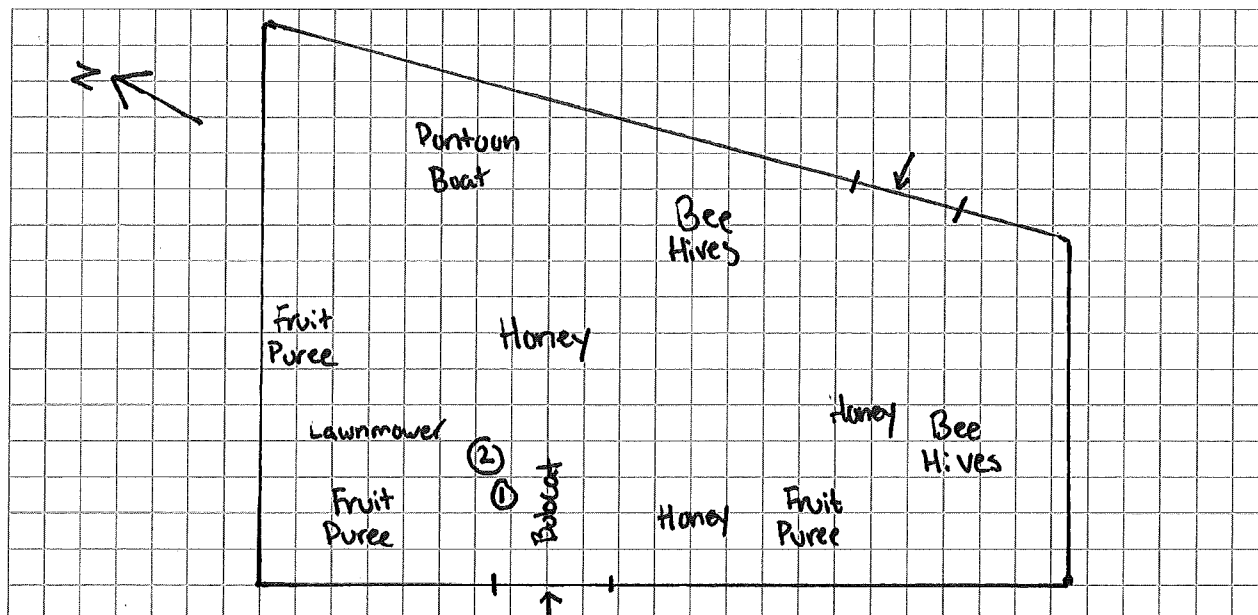 N
Pontoon
Boat
Bee
Hives
Fruit
Puree
Honey
Lawnmower
Honey
Bee
Hives
②
①
Bobcat
Fruit
Puree
Honey
Fruit
Puree